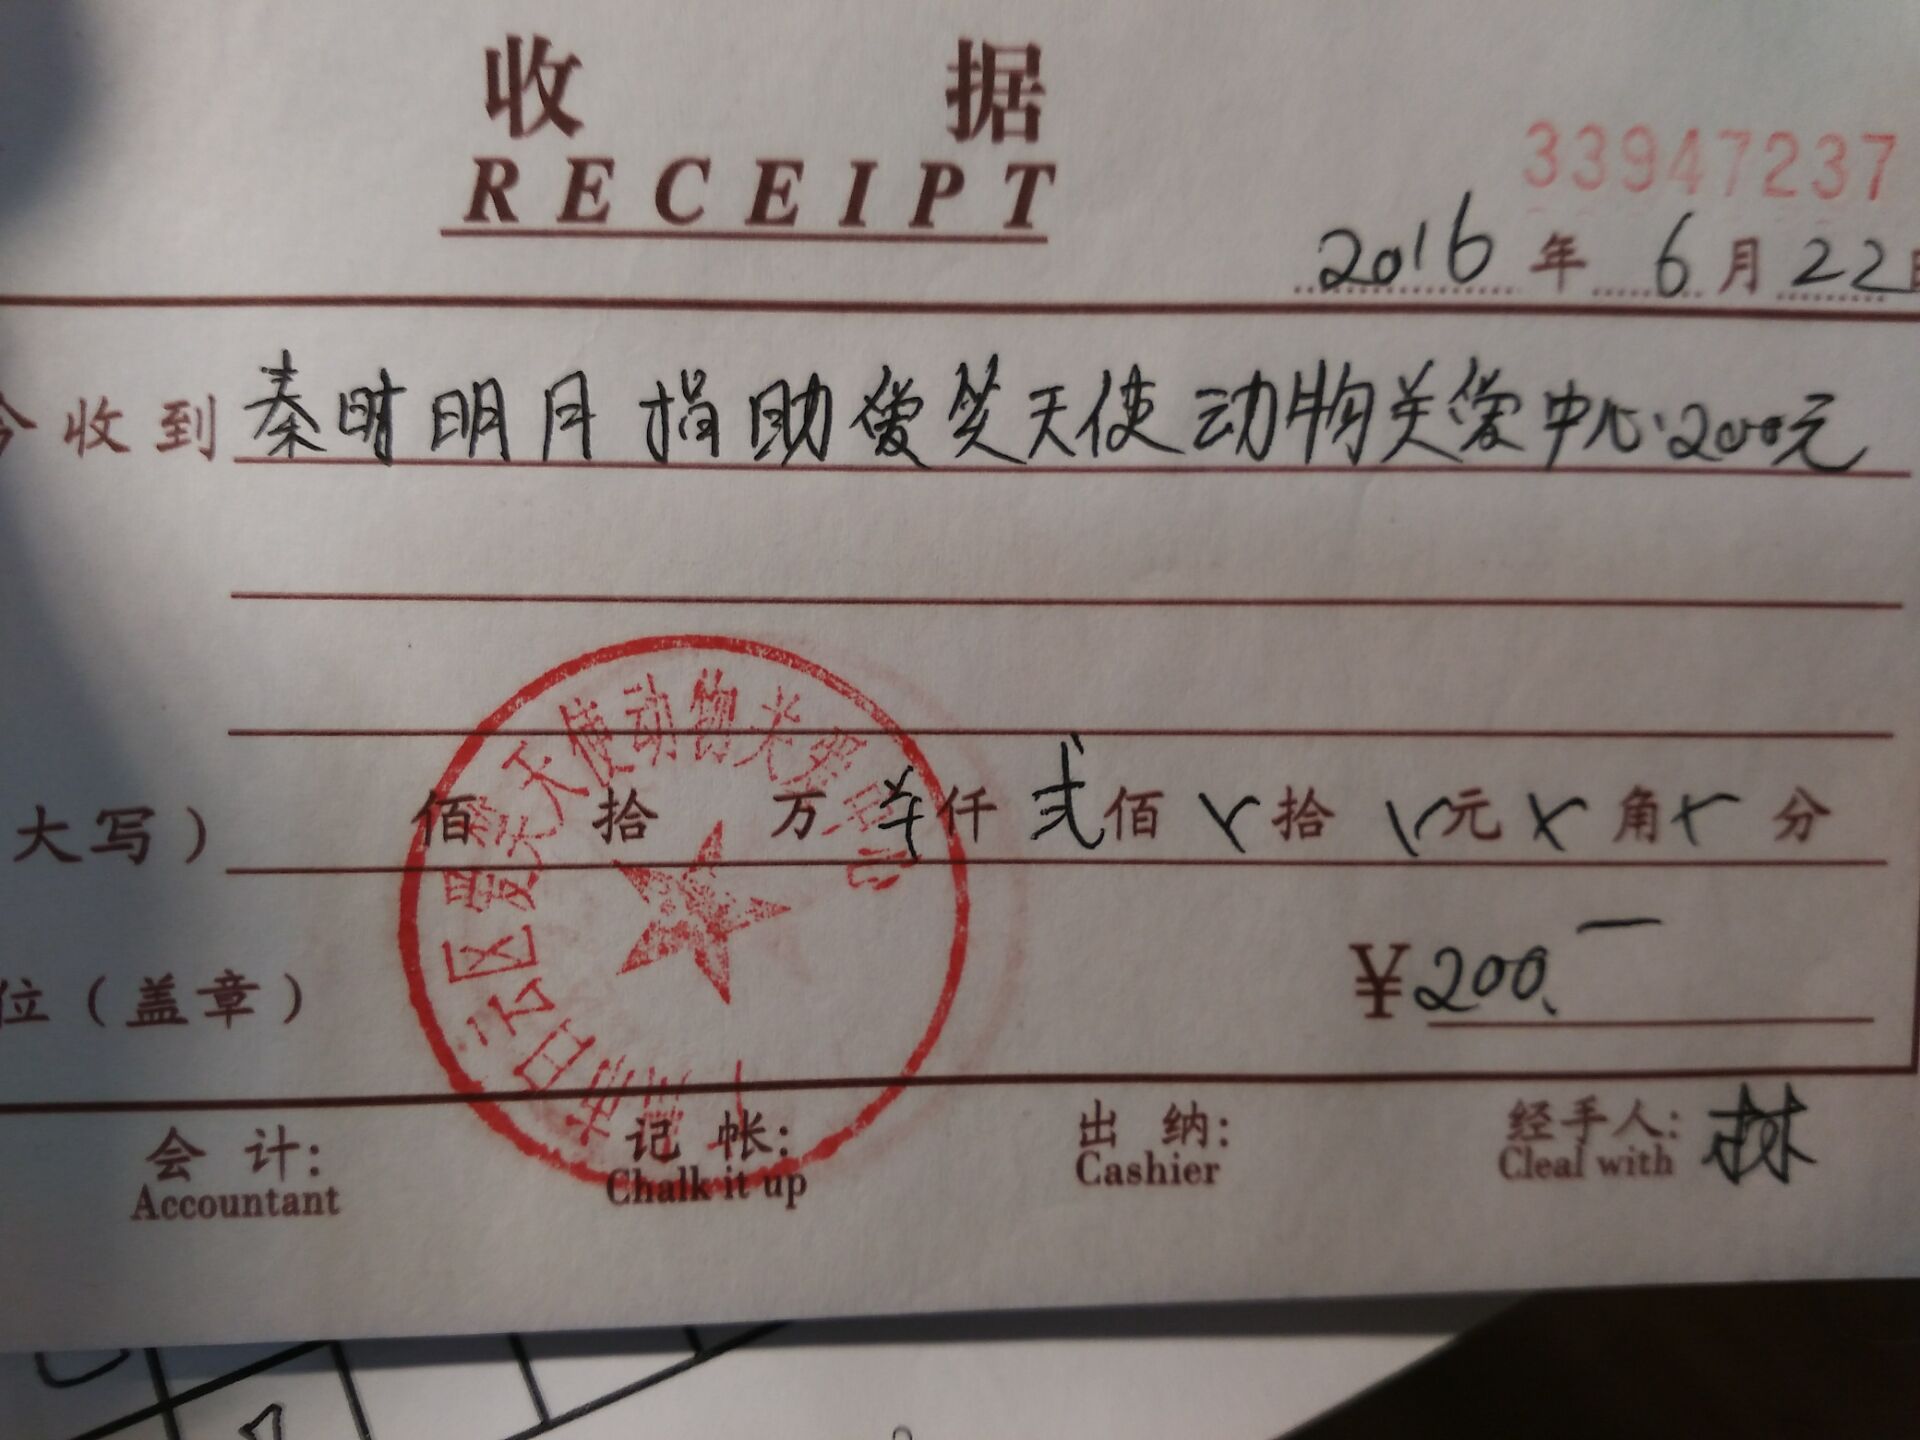 收 据
RECEIPT
33947237
2016 年 6 月 22 日
今收到 秦时明月捐助爱笑天使动物关爱中心200元
大写） 佰 拾 万 仟 弍 佰 拾 元 角 分
位（盖章） ¥200.—
广州市白云区爱笑天使动物关爱中心
会 计: 记 帐: 出 纳: 经手人: 林
Accountant Chalk it up Cashier Cleal with